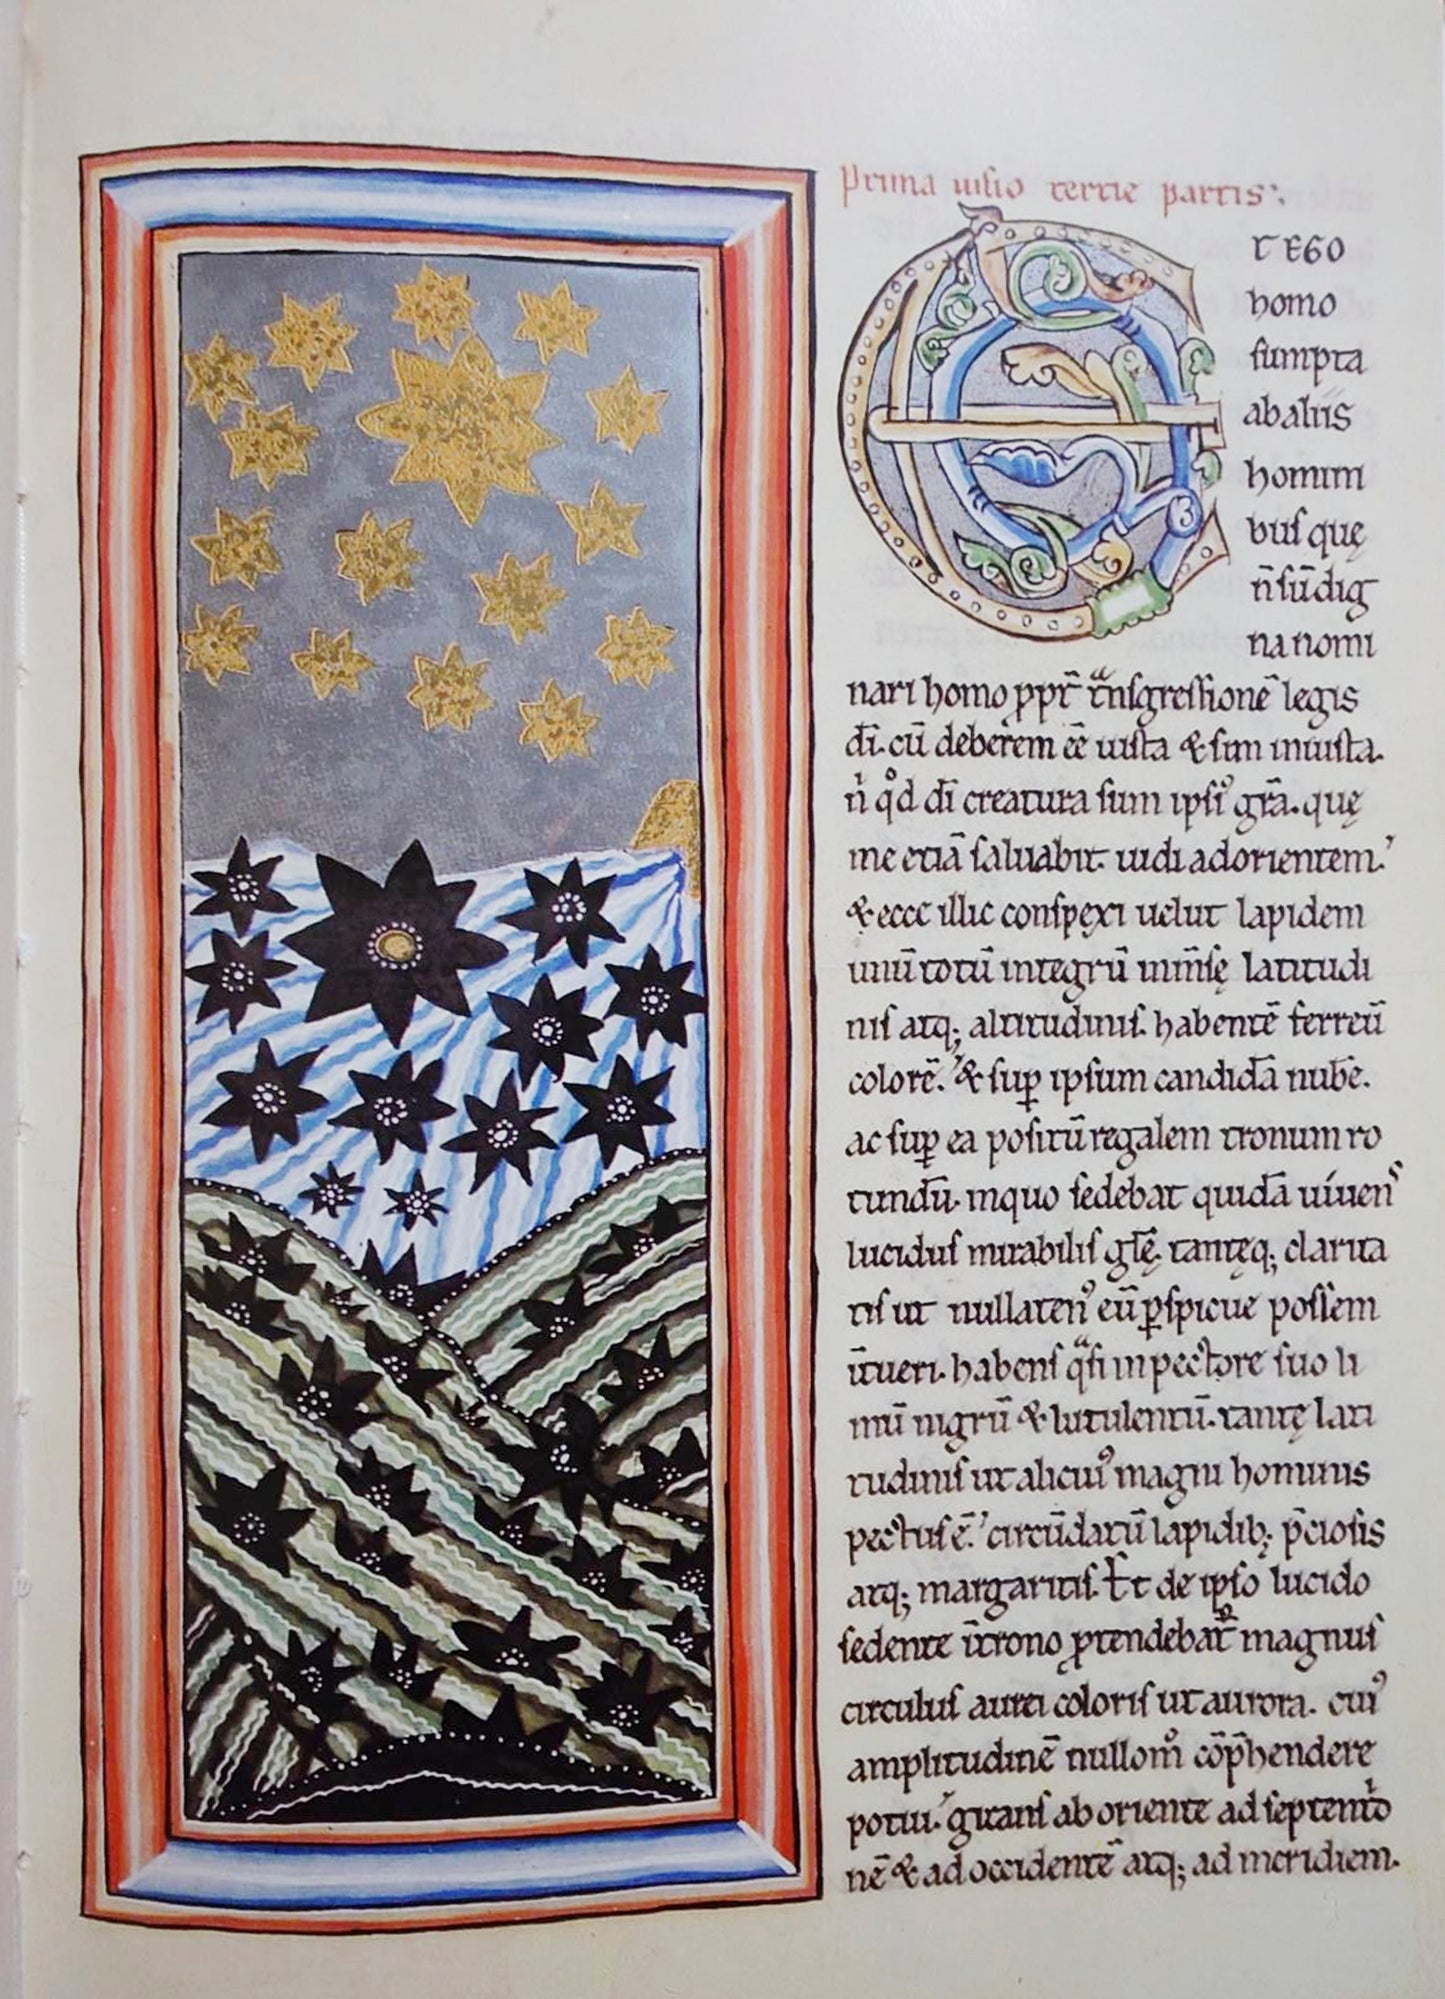 Prima uisio tercie partis.
ET EGO
homo
sumpta
ab aliis
homini
bus quę
n̄ sū dig
na nomi
nari homo ppt̄ tᵃnsgressionē legis
dī. cū deberem eē iusta & sum iniusta.
n̄ qͦd dī creatura sum ipsiꝰ grā. quę
me etiā saluabit. uidi ad orientem.
& ecce illic conspexi uelut lapidem
unū totū integrū inm̄sę latitudi
nis atq; altitudinis. habentē ferreū
colorē. & suꝑ ipsum candidā nubē.
ac suꝑ ea positū regalem tronum ro
tundū. in quo sedebat quidā uiuens
lucidus mirabilis glē. tantęq; clarita
tis ut nullatenꝰ eū ꝑspicue possem
ītueri. habens qᵃsi in pectore suo li
mū nigrū & lutulentū. tantę lati
tudinis ut alicuiꝰ magni hominis
pectus ē. circūdatū lapidib; p̄ciosis
atq; margaritis. Et de ipso lucido
sedente ī trono ꝓtendebat᷑ magnus
circulus aurei coloris ut aurora. cuiꝰ
amplitudinē nullom̊ cōp̄hendere
potui. girans ab oriente ad septemtͥo
nē & ad occidentē atq; ad meridiem.